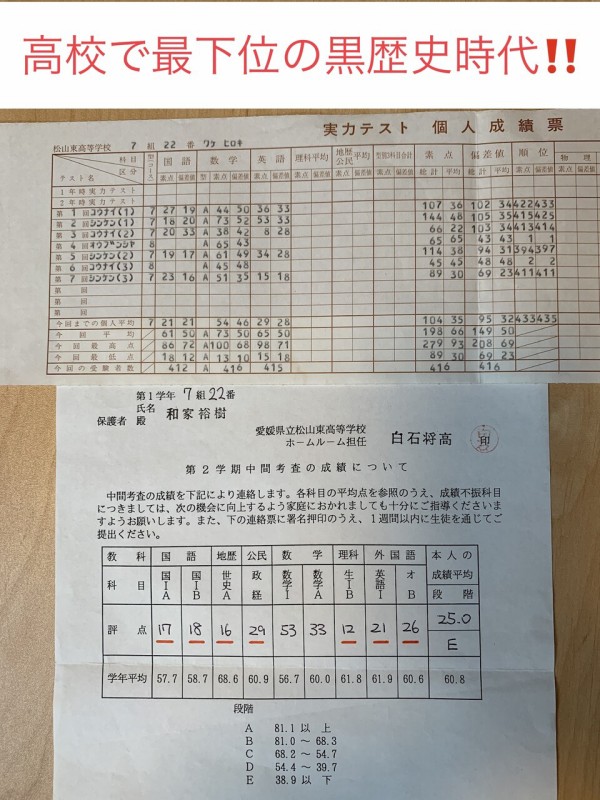 高校で最下位の黒歴史時代‼️
実力テスト 個人成績票
松山東高等学校 7組 22番 ワケ ヒロキ
科目 区分 テスト名 型(コース) 国語 数学 英語 理科平均 地歴公民平均 型別科目合計 素点 偏差値 順位 物理
素点 偏差値 型 素点 偏差値 素点 偏差値 素点 偏差値 素点 偏差値 素点 偏差値 総計 平均 総計 平均
1年時実力テスト
2年時実力テスト
第1回コウナイ(1) 7 27 19 A 44 50 36 33 107 36 102 34 422 433
第2回シンケン(1) 7 18 20 A 73 52 53 33 144 48 105 35 415 425
第3回コウナイ(2) 7 20 33 A 38 42 8 28 66 22 103 34 413 414
第4回 8 A 65 43 65 65 43 43 1 1
第5回シンケン(2) 7 19 17 A 61 49 34 28 114 38 94 31 394 397
第6回コウナイ(3) 8 A 45 48 45 45 48 48 2 2
第7回シンケン(3) 7 23 16 A 51 35 15 18 89 30 69 23 411 411
第 回
第 回
第 回
今回までの個人平均 7 21 21 54 46 29 28 104 35 95 32 433 435
今回平均 61 50 A 73 50 65 50 198 66 149 50
今回最高点 86 72 A 100 68 98 71 279 93 208 69
今回最低点 18 12 A 13 10 15 18 89 30 69 23
今回の受験者数 412 A 416 415 416 416
第1学年 7組 22番
氏名
保護者 殿 和家裕樹
愛媛県立松山東高等学校
ホームルーム担任 白石将高 印
第2学期中間考査の成績について
中間考査の成績を下記により連絡します。各科目の平均点を参照のうえ、成績不振科目
につきましては、次の機会に向上するよう家庭におかれましても十分にご指導くださいま
すようお願いします。また、下の連絡票に署名押印のうえ、1週間以内に生徒を通じてご
提出ください。
教科 国語 地歴 公民 数学 理科 外国語 本人の成績平均
科目 国ⅠA 国ⅠB 世史A 政経 数学Ⅰ 数学A 生ⅠB 英語Ⅰ オB 段階
評点 17 18 16 29 53 33 12 21 26 25.0 E
学年平均 57.7 58.7 68.6 60.9 56.7 60.0 61.8 61.9 60.6 60.8
段階
A 81.1 以上
B 81.0 ～ 68.3
C 68.2 ～ 54.7
D 54.4 ～ 39.7
E 38.9 以下